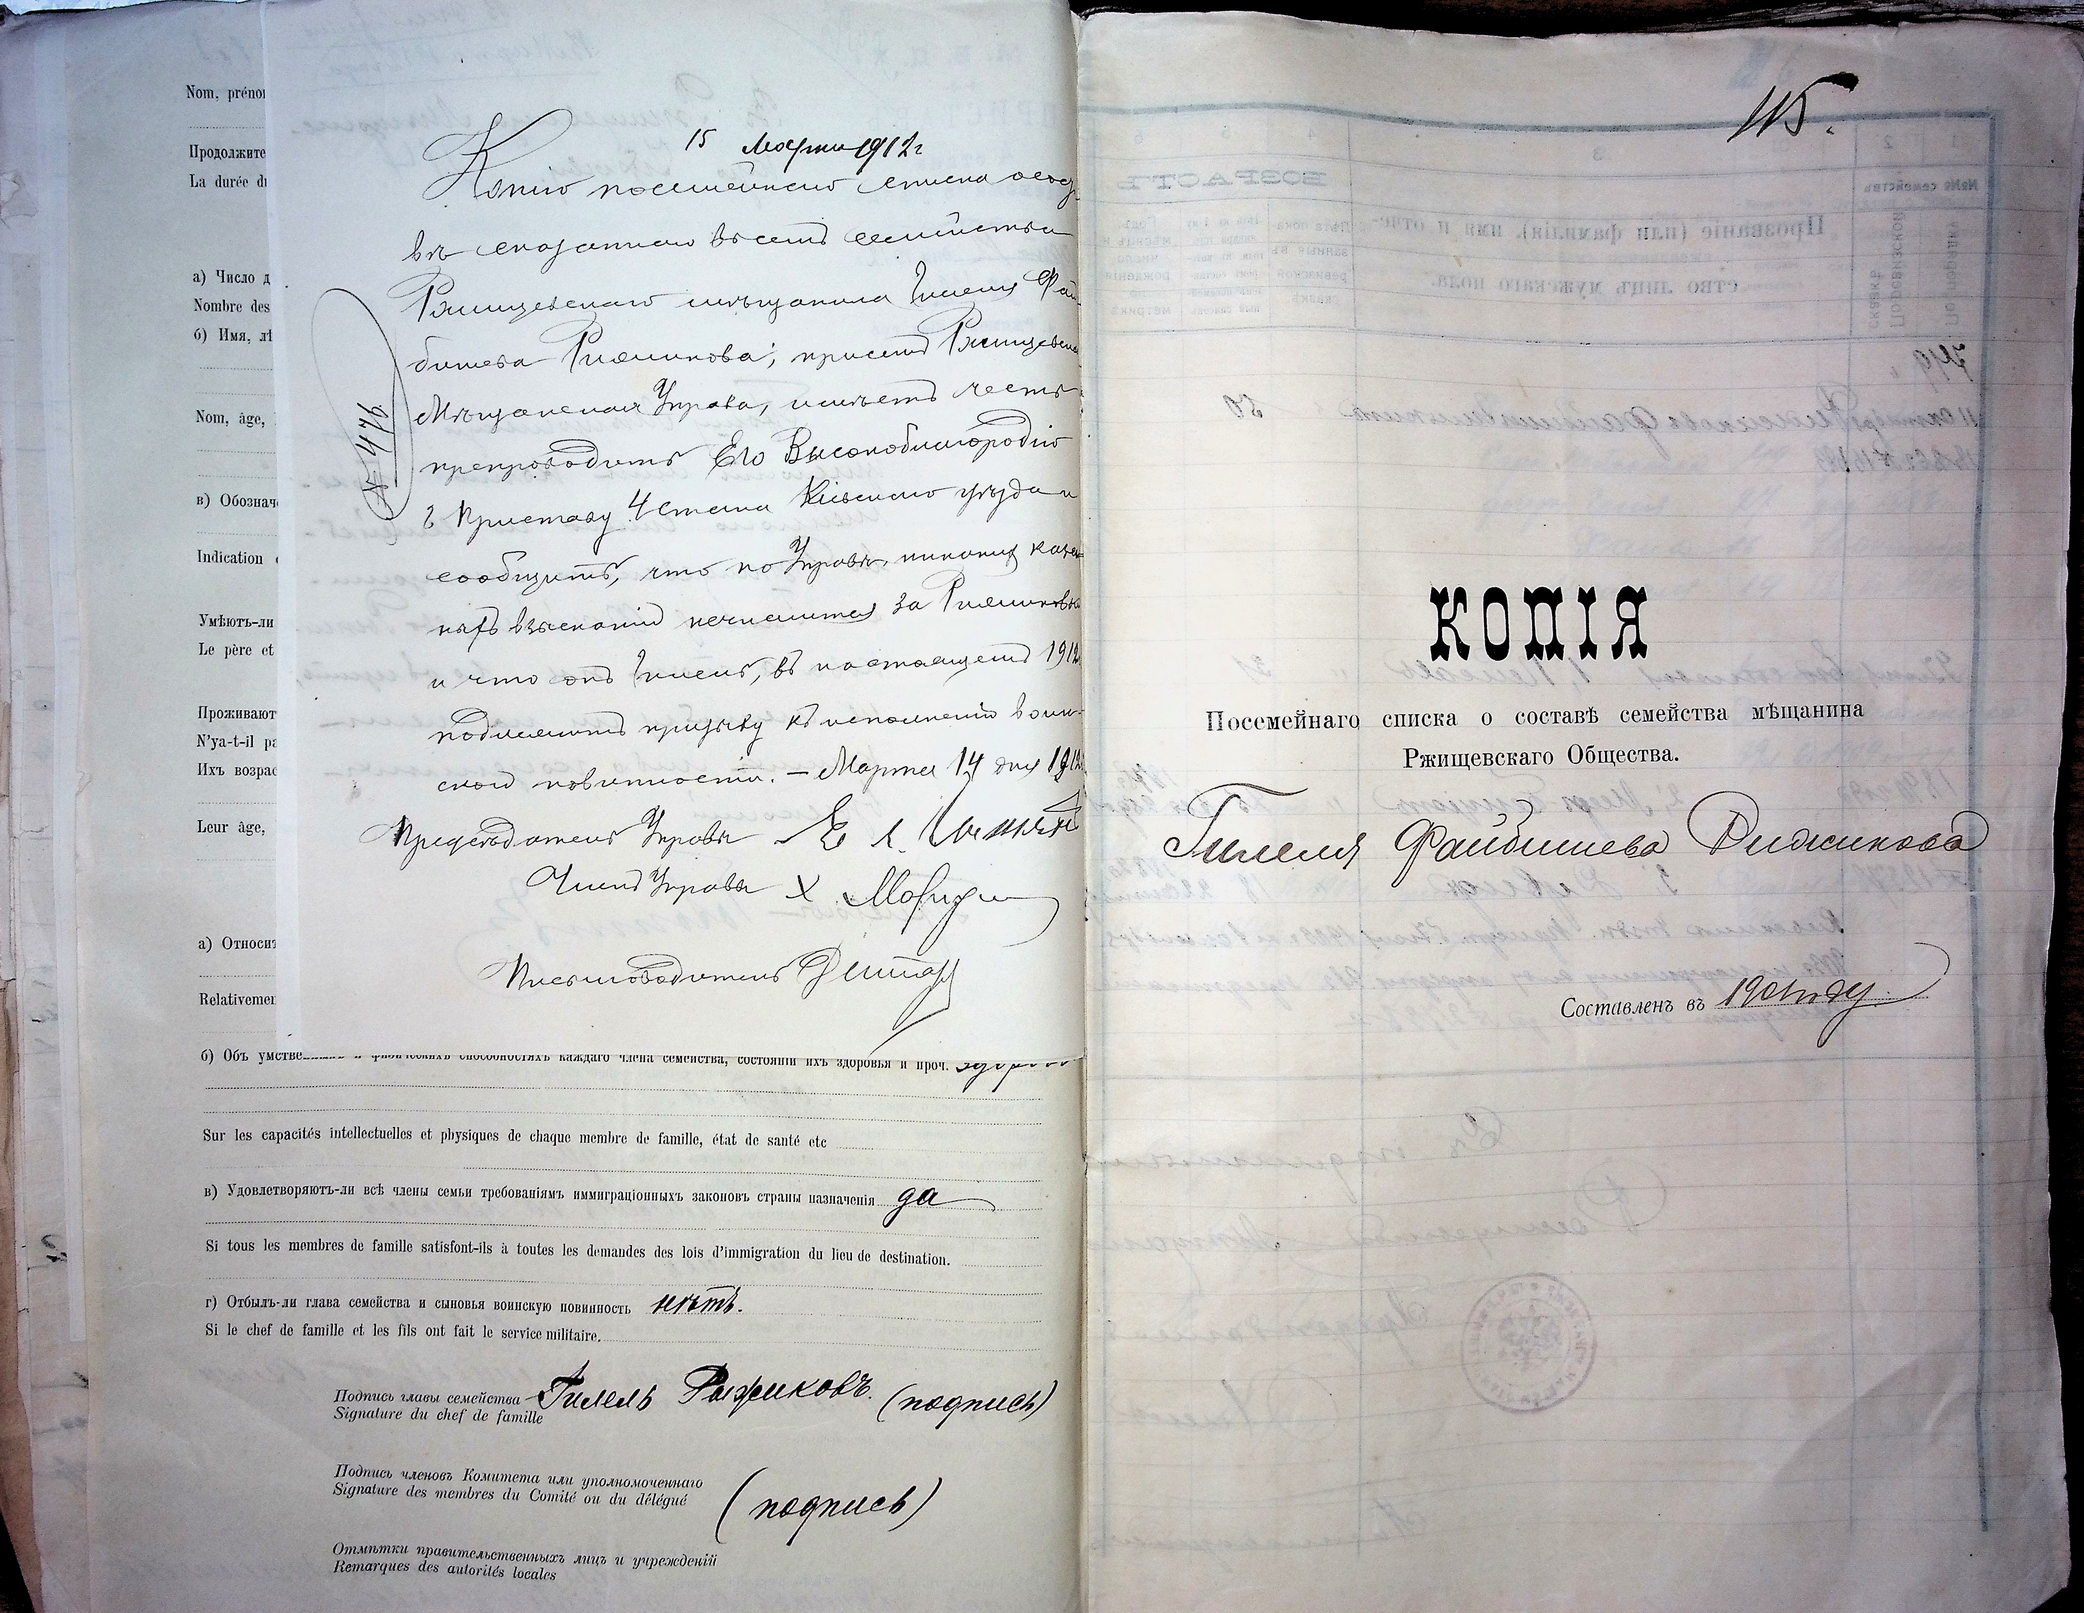 Nom, prénor
Продолжите
La durée d
а) Число д
Nombre des
б) Имя, лѣ
Nom, âge,
в) Обознач
Indication
Умѣютъ-ли
Le père et
Проживают
N'ya-t-il pa
Ихъ возрас
Leur âge,
а) Относит
Relativemen
15 Марта 1912 г
Копію посемейнаго списка о сос
въ сказанномъ семейства
Ржищевскаго мѣщанина Гилеля Фай
бишева Рижикова, при семъ Ржищевска
Мѣщанская Управа, имѣетъ честь
препроводить Его Высокоблагородію
г Приставу 4 стана Кіевскаго уѣзда и
сообщить, что по Управѣ никакихъ казен
ныхъ взысканій не числится за Рижиковы
и что онъ Гилель, въ настоящемъ 1912
подлежитъ призыву къ исполненію воин-
ской повинности. – Марта 14 дня 1912
№ 476
Предсѣдатель Управы
Членъ Управы
Письмоводитель
б) Объ умстве и физическихъ способностяхъ каждаго члена семейства, состояніи ихъ здоровья и проч. здоров
Sur les capacités intellectuelles et physiques de chaque membre de famille, état de santé etc
в) Удовлетворяютъ-ли всѣ члены семьи требованіямъ иммиграціонныхъ законовъ страны назначенія да
Si tous les membres de famille satisfont-ils à toutes les demandes des lois d'immigration du lieu de destination.
г) Отбылъ-ли глава семейства и сыновья воинскую повинность нѣтъ.
Si le chef de famille et les fils ont fait le service militaire.
Подпись главы семейства Гилель Рыжиковъ. (подпись)
Signature du chef de famille
Подпись членовъ Комитета или уполномоченнаго
Signature des membres du Comité ou du délégué (подпись)
Отмѣтки правительственныхъ лицъ и учрежденій
Remarques des autorités locales
115.
КОПІЯ
Посемейнаго списка о составѣ семейства мѣщанина
Ржищевскаго Общества.
Гилеля Файбишева Рижикова
Составленъ въ 190 году